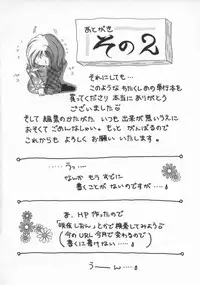 あとがき
その2
それにしても…
このような わたくしめの 単行本を
買ってくださり 本当に ありがとう
ございました
そして 編集のかたがた いつも 出来が 悪いうえに
おそくて ごめんなしゃい。もっと がんばるので
これからも よろしく お願い いたします。
……うっ……
なんか もう すでに
書くことが ないのですが……
あ、HP 作ったので
とかで 検索してみよう
(今の URL 今月で 変わるので)
(書くに書けない……)
うーん……